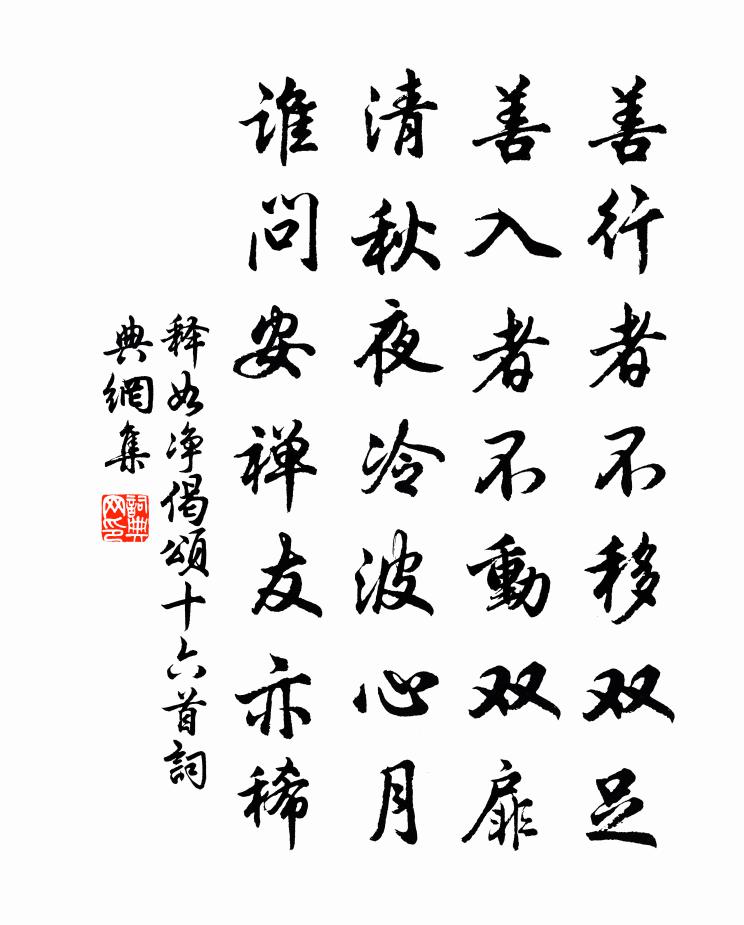 善行者不移双足
善入者不動双扉
清秋夜冷波心月
谁问安禅友亦稀
释如净偈颂十六首詞
典網集
詞典网印